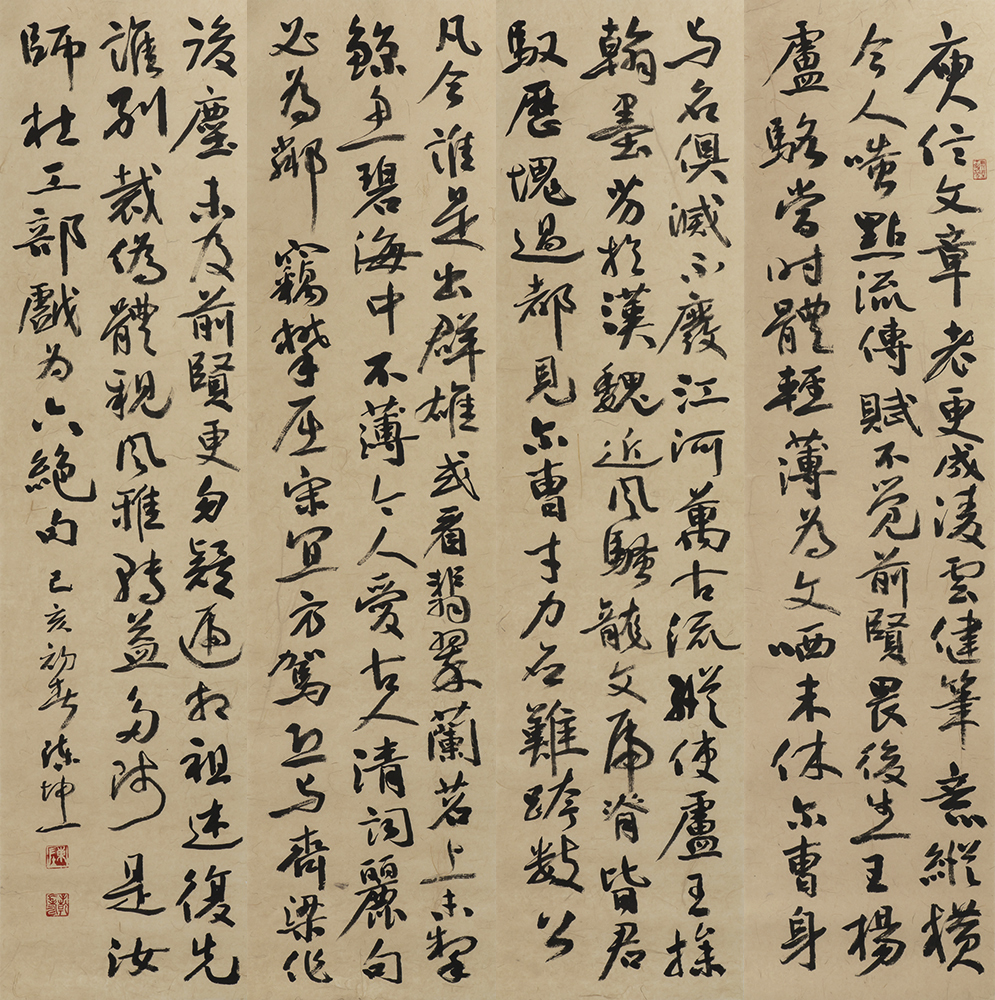 庾信文章老更成凌雲健筆意縱横
今人嗤點流傳賦不觉前賢畏後生王楊
盧駱當時體輕薄為文哂未休尔曹身
与名俱滅不廢江河萬古流縱使盧王操
翰墨劣於漢魏近風騷龍文虎脊皆君
馭歷塊過都見尔曹才力应難跨數公
凡今誰是出群雄或看翡翠蘭苕上未掣
鲸鱼碧海中不薄今人愛古人清詞麗句
必為鄰竊攀屈宋宜方駕恐与齊梁作
後塵未及前賢更勿疑遞相祖述復先
誰别裁偽體親風雅轉益多师是汝
師杜工部戲为六絕句 己亥初春 陳坤一